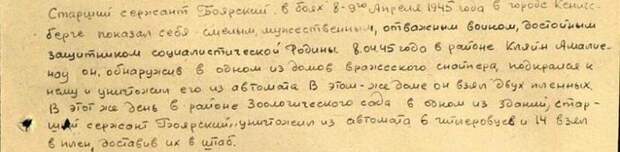 Старший сержант Боярский в боях 8-9го Апреля 1945 года в городе Кенигс-
берге показал себя смелым, мужественным, отважным воином, достойным
защитником социалистической Родины. 8.04.45 года в районе Кляйн Амалие-
нау он, обнаружив в одном из домов вражесского снайпера, подкрался к
нему и уничтожил его из автомата. В этом-же доме он взял двух пленных.
В этот же день в районе Зоологического сада в одном из зданий, стар-
ший сержант Боярский, уничтожил из автомата 6 гитлеровцев и 14 взял
в плен, доставив их в штаб.